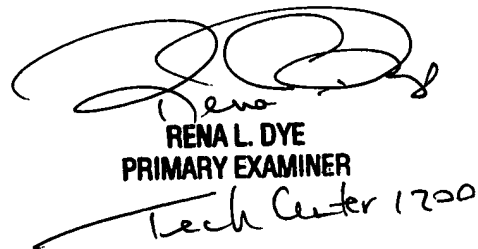 Rena
RENA L. DYE
PRIMARY EXAMINER
Tech Center 1700